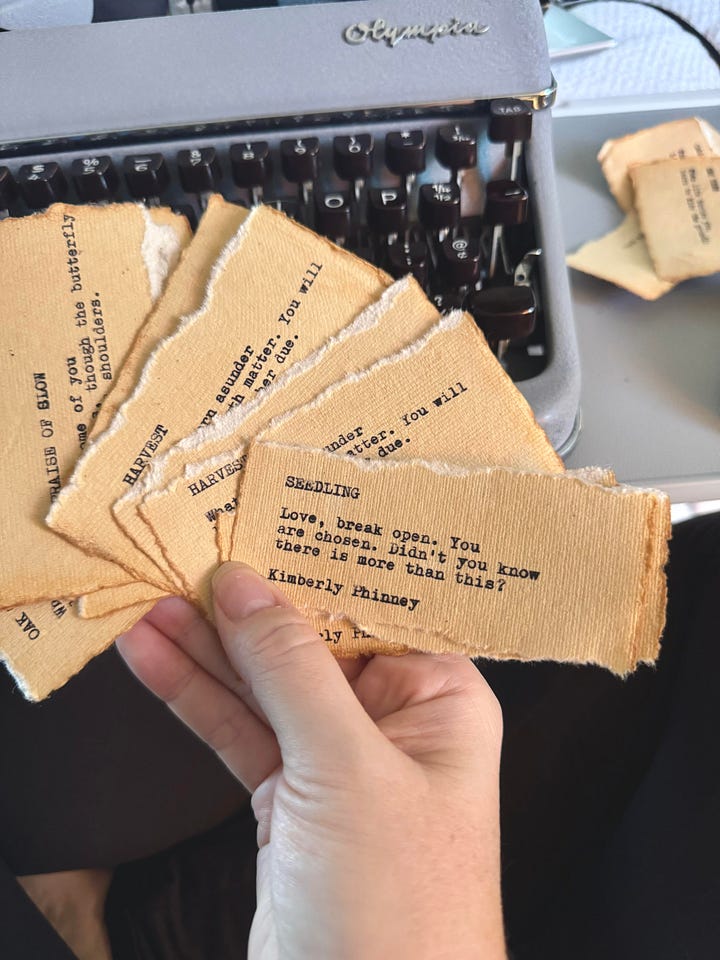 Olympia
TAB
O
P
RAISE OF SLOW
ome of you
though the butterfly
shoulders.
HARVEST
rn asunder
th matter. You will
her due.
HARVEST
What
under
atter. You will
due.
SEEDLING
Love, break open. You
are chosen. Didn't you know
there is more than this?
Kimberly Phinney
rly Ph
OAK